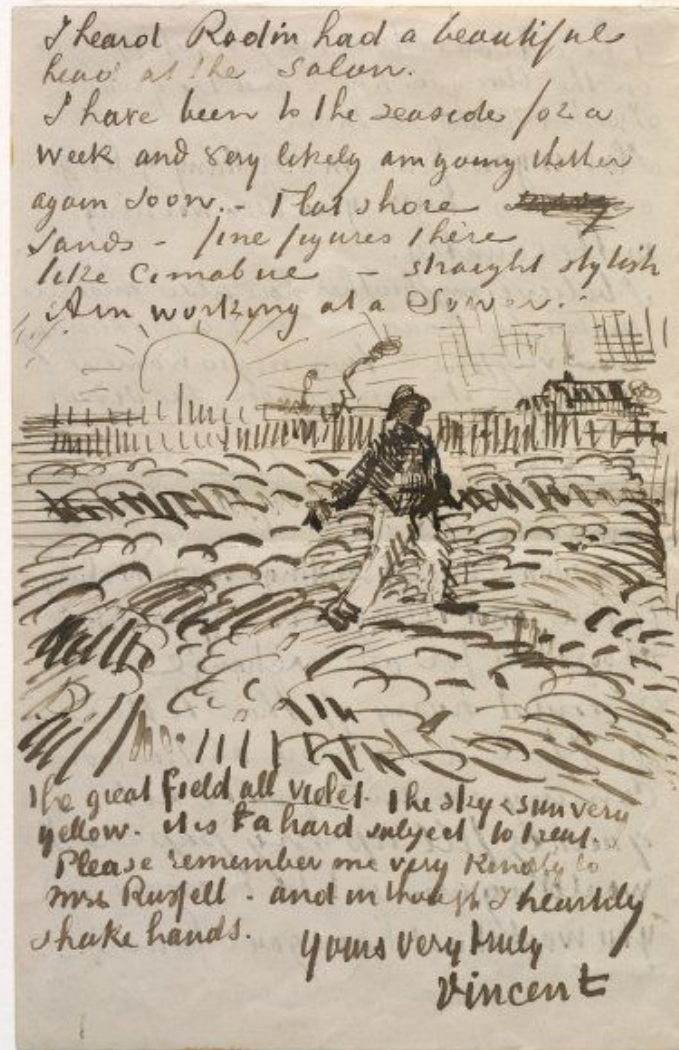 I heard Rodin had a beautiful
head at the Salon.
I have been to the seaside for a
week and very likely am going thither
again soon. - Flat shore
sands - fine figures there
like Cimabue - straight stylish
Am working at a Sower.
The great field all violet. the sky & sun very
yellow. it is a hard subject to treat.
Please remember me very kindly to
mrs Russell - and in thought I heartily
shake hands.
yours very truly
Vincent